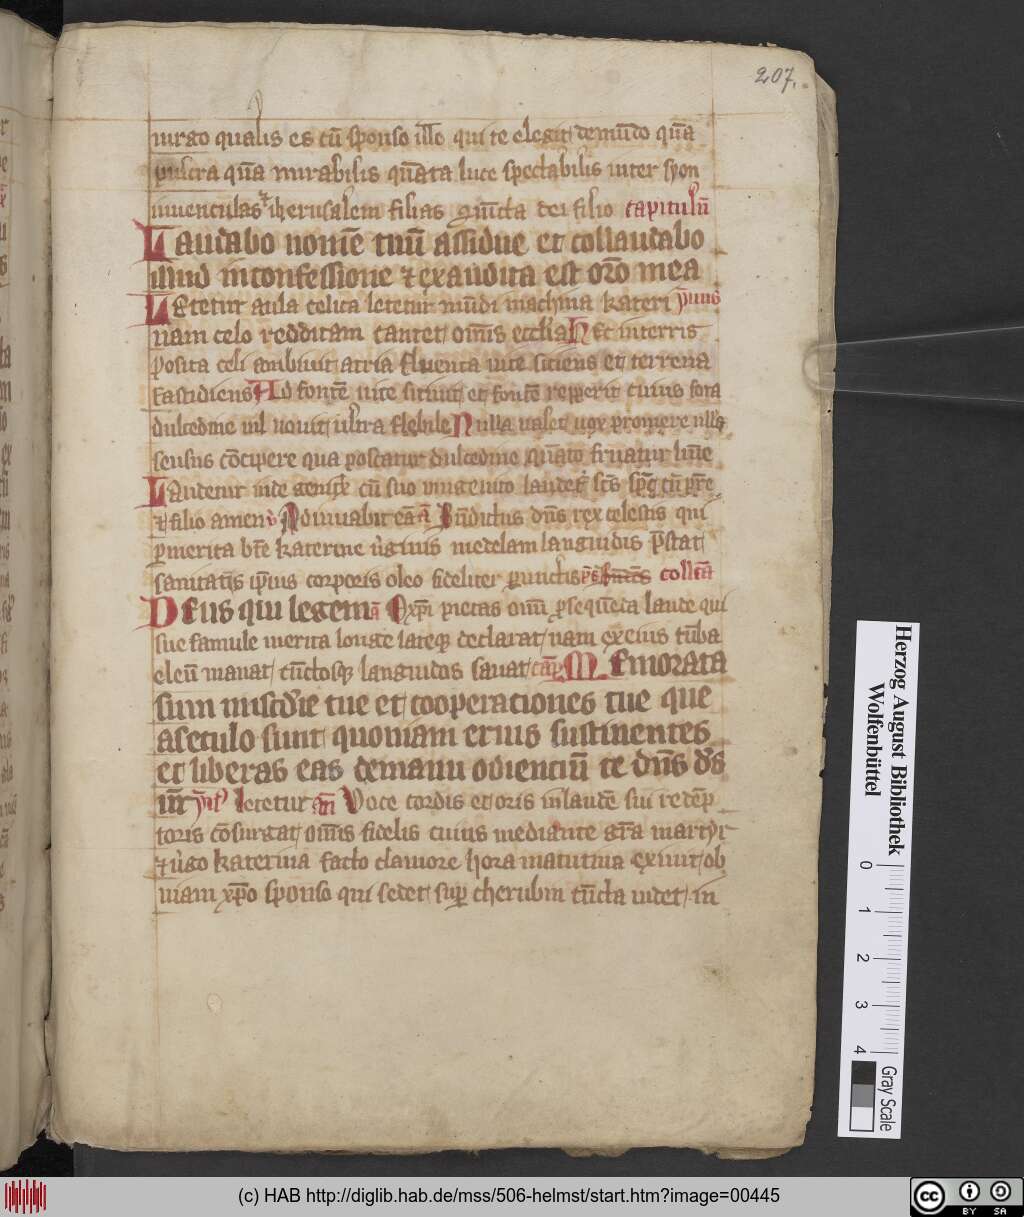 207.
uirgo qualis es cū sponso illo qui te elegit de mūdo quā
pulcra quā mirabilis quāta luce spectabilis inter syon
iuuenculas & iherusalem filias cūcta dei filio capitulū
Laudabo nomē tuū assidue et collaudabo
illud in confessione ⁊ exaudita est orō mea
Letetur aula celica letetur mūdi machina kateri ymnus
nam celo redditam cantet omīs ecclīa Hec in terris
posita celi ambiuit atria fluenta uite sitiens et terrena
fastidiens Ad fontē uite sitiuit et fontē repperit cuius fota
dulcedine nil nouit ultra flebile Nulla ualet uox promere nllꝰ
sensus cōcipere qua poscatur dulcedine quāto fruatur lumīe
Laudetur inde genitor cū suo unigenito laudet scūs spūs cū prē
⁊ filio amen v̄ Adiuuabit eā a Bn̄dictus dn̄s rex celestis qui
p merita btē katerine uginis medelam languidis prestat
sanitatis ipius corporis oleo fideliter punctis collcā
Deus qui legem a Expi pietas omi psequēda laude qui
sue famule merita longe lateqꝫ declarat nam ex eius tūba
oleū manat cūctosqꝫ languidos sanat cap Memorata
sum miscdīe tue et cooperationes tue que
a seculo sunt quoniam eruis sustinentes
et liberas eas de manu odientiū te dn̄s ds
nr̄ ymp Letetur an Voce cordis et oris in laudē sui redēp
toris cōsurgat omīs fidelis cuius mediante grā martyr
⁊ ugo katerina facto clamore hora matutina exiuit ob
uiam xpo sponso qui sedet sup cherubin cūcta uidet in
Herzog August Bibliothek
Wolfenbüttel
0 1 2 3 4
Gray Scale
(c) HAB http://diglib.hab.de/mss/506-helmst/start.htm?image=00445
cc BY SA